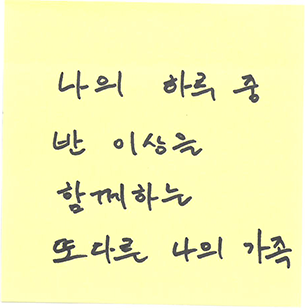 나의 하루 중
반 이상을
함께하는
또다른 나의 가족